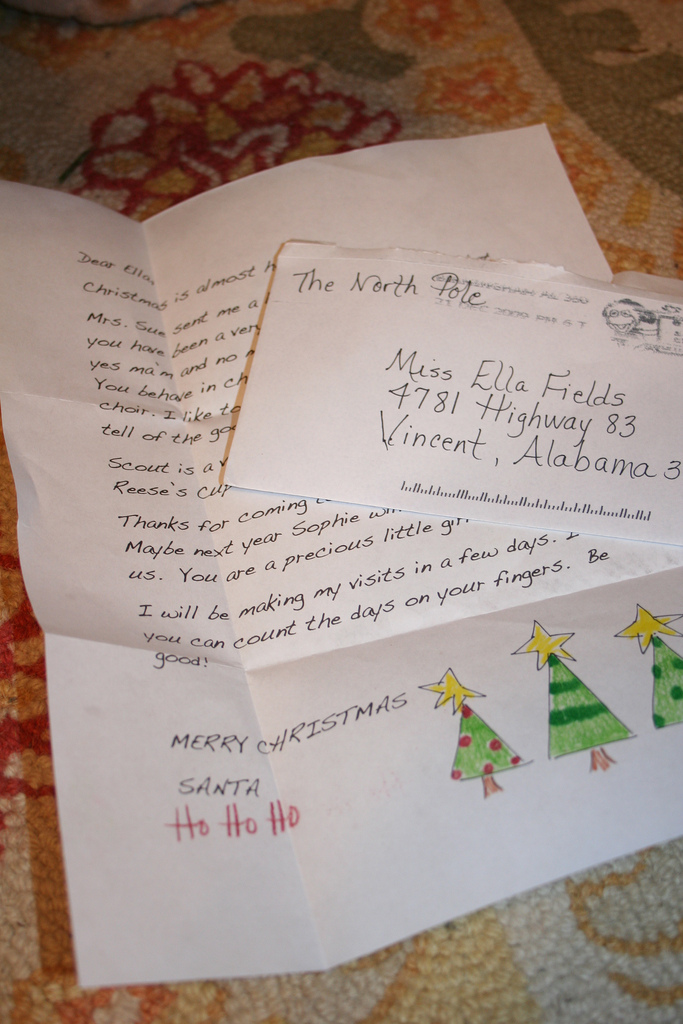 Dear Ella,
Christmas is almost
Mrs. Sue sent me a
you have been a very
yes ma'm and no
You behave in
choir. I like to
tell of the
Scout is a
Reese's
Thanks for coming
Maybe next year Sophie
us. You are a precious little
I will be making my visits in a few days.
you can count the days on your fingers. Be
good!
MERRY CHRISTMAS
SANTA
Ho Ho HO
The North Pole
21 DEC 2009 PM 6 T
Miss Ella Fields
4781 Highway 83
Vincent, Alabama 3